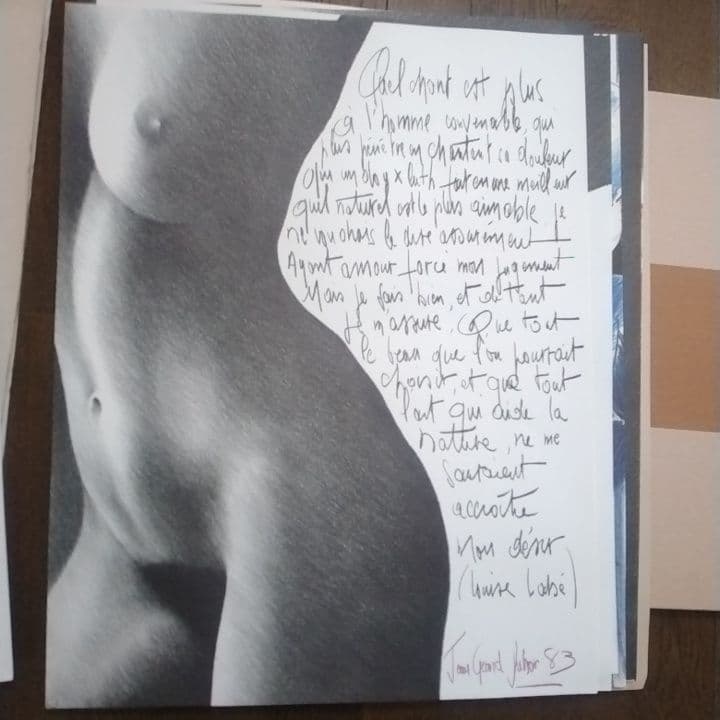 Quel chant est plus
à l'homme convenable, qui
plus pénètre en chantant sa douleur
Qui un doux luth fait encore meilleur
quel naturel est le plus aimable je
ne voudrais le dire assurément
Ayant amour forcé mon jugement
Mais je sais bien, et de tant
je m'assure, Que tout
le beau que l'on pourrait
choisir, et que tout
l'art qui aide la
nature, ne me
sauraient
accroître
Mon désir
(Louise Labé)
Jean Gérard 83